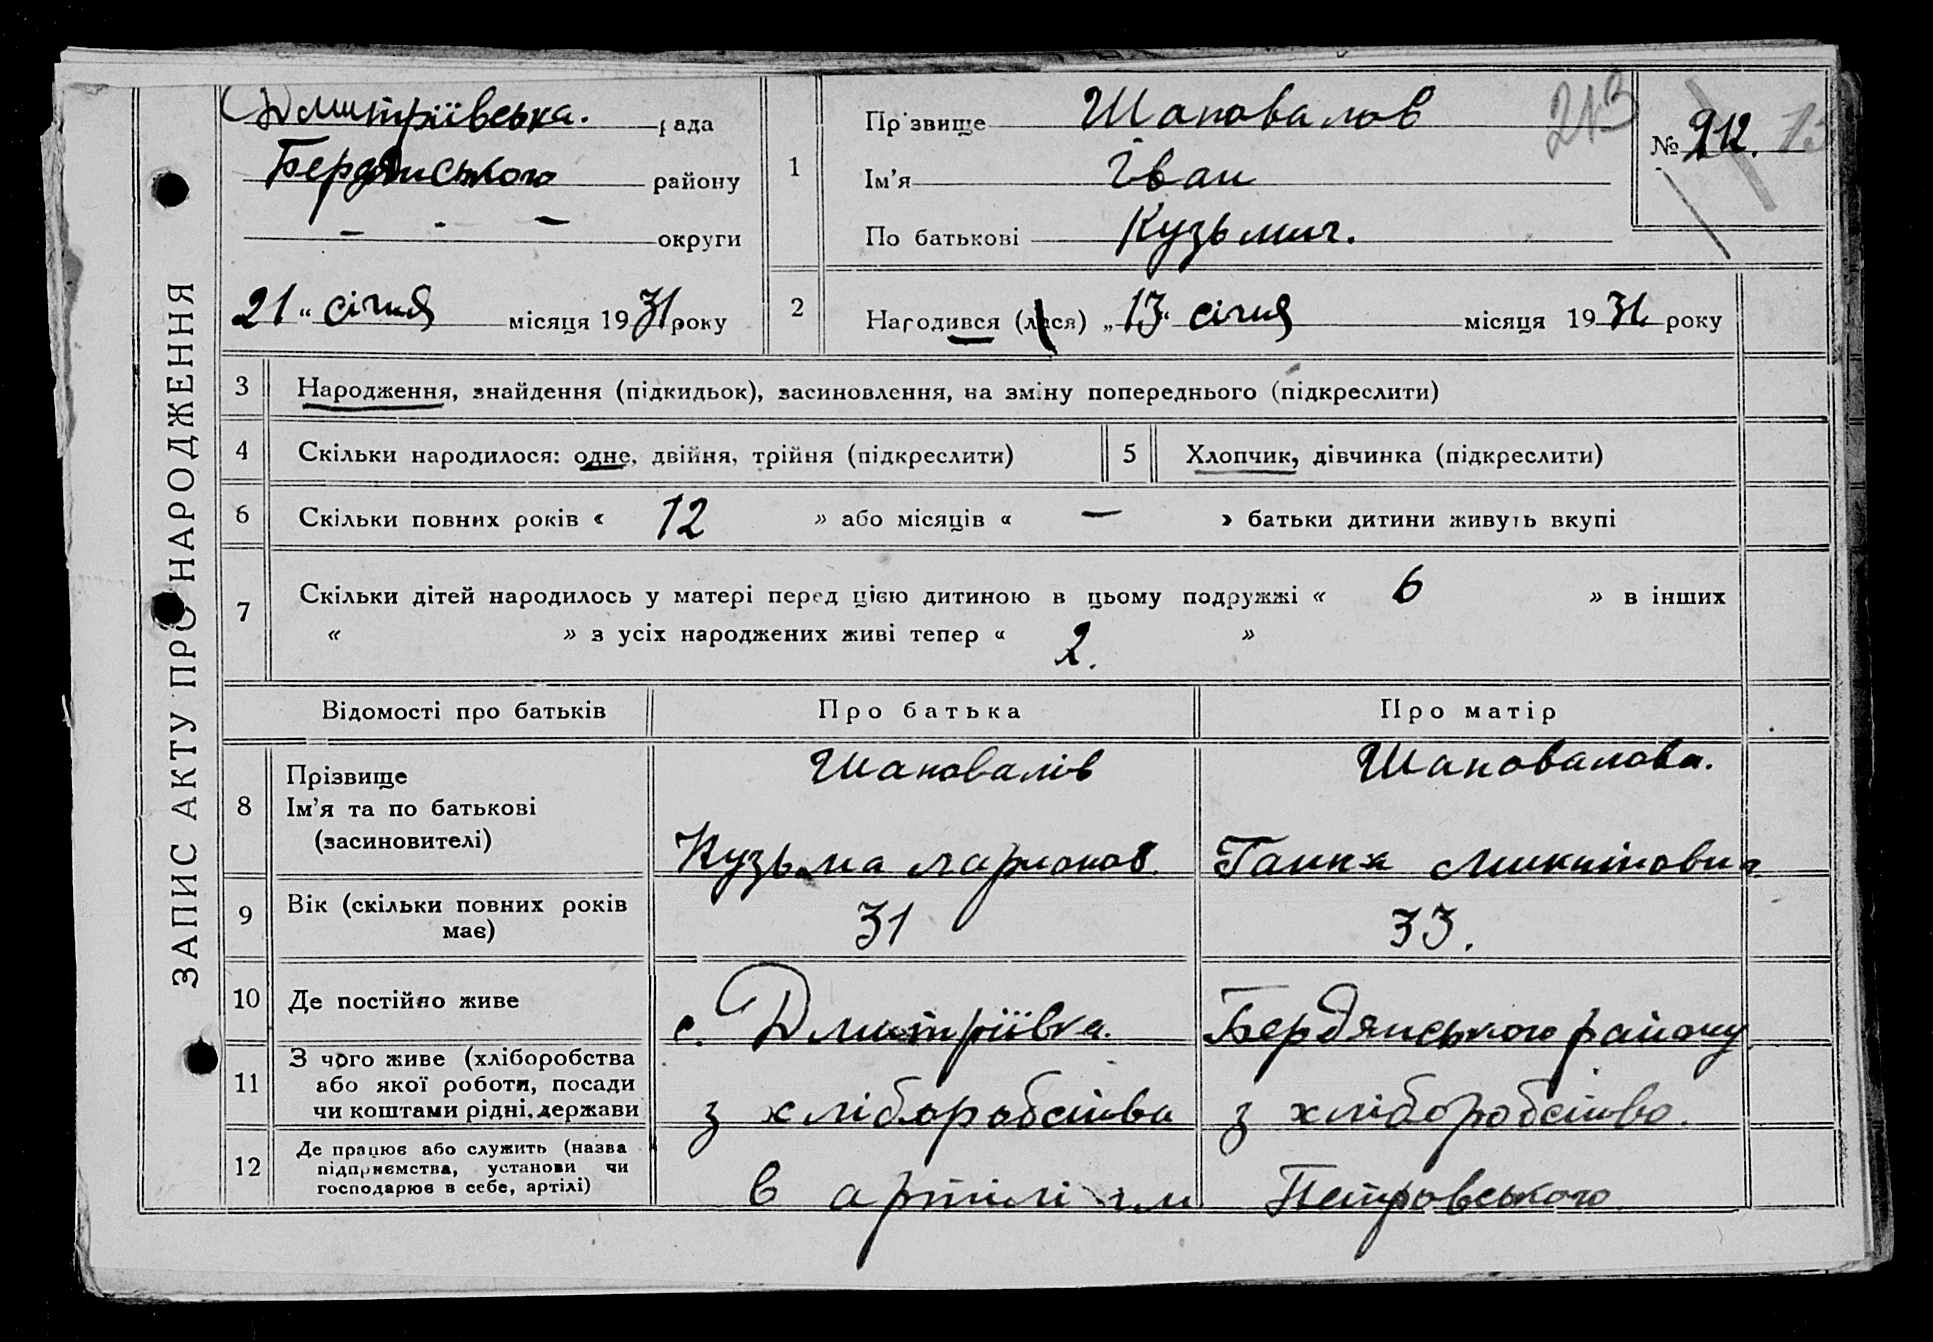 ЗАПИС АКТУ ПРО НАРОДЖЕННЯ
Дмитріївська. рада
Бердянського району
— - — округи
21 „ січня місяця 1931 року
1
Прізвище Шаповалов
Ім’я Іван
По батькові Кузьмич.
213
№ 212. 13
2
Народився (лася) „13“ січня місяця 1931 року
3 Народження, знайдення (підкидьок), засиновлення, на зміну попереднього (підкреслити)
4 Скільки народилося: одне, двійня, трійня (підкреслити) 5 Хлопчик, дівчинка (підкреслити)
6 Скільки повних років « 12 » або місяців « — » батьки дитини живуть вкупі
7 Скільки дітей народилось у матері перед цією дитиною в цьому подружжі « 6 » в інших
« » з усіх народжених живі тепер « 2. »
Відомості про батьків Про батька Про матір
8 Прізвище
Ім’я та по батькові
(засиновителі)
Шаповалів
Кузьма Ларионов.
Шаповалова.
Ганна Микитовна
9 Вік (скільки повних років
має)
31 33.
10 Де постійно живе с. Дмитріївка. Бердянського району
11 З чого живе (хліборобства
або якої роботи, посади
чи коштами рідні, держави
з хліборобства з хліборобства.
12 Де працює або служить (назва
підприємства, установи чи
господарює в себе, артілі)
в артілі ім Петровського